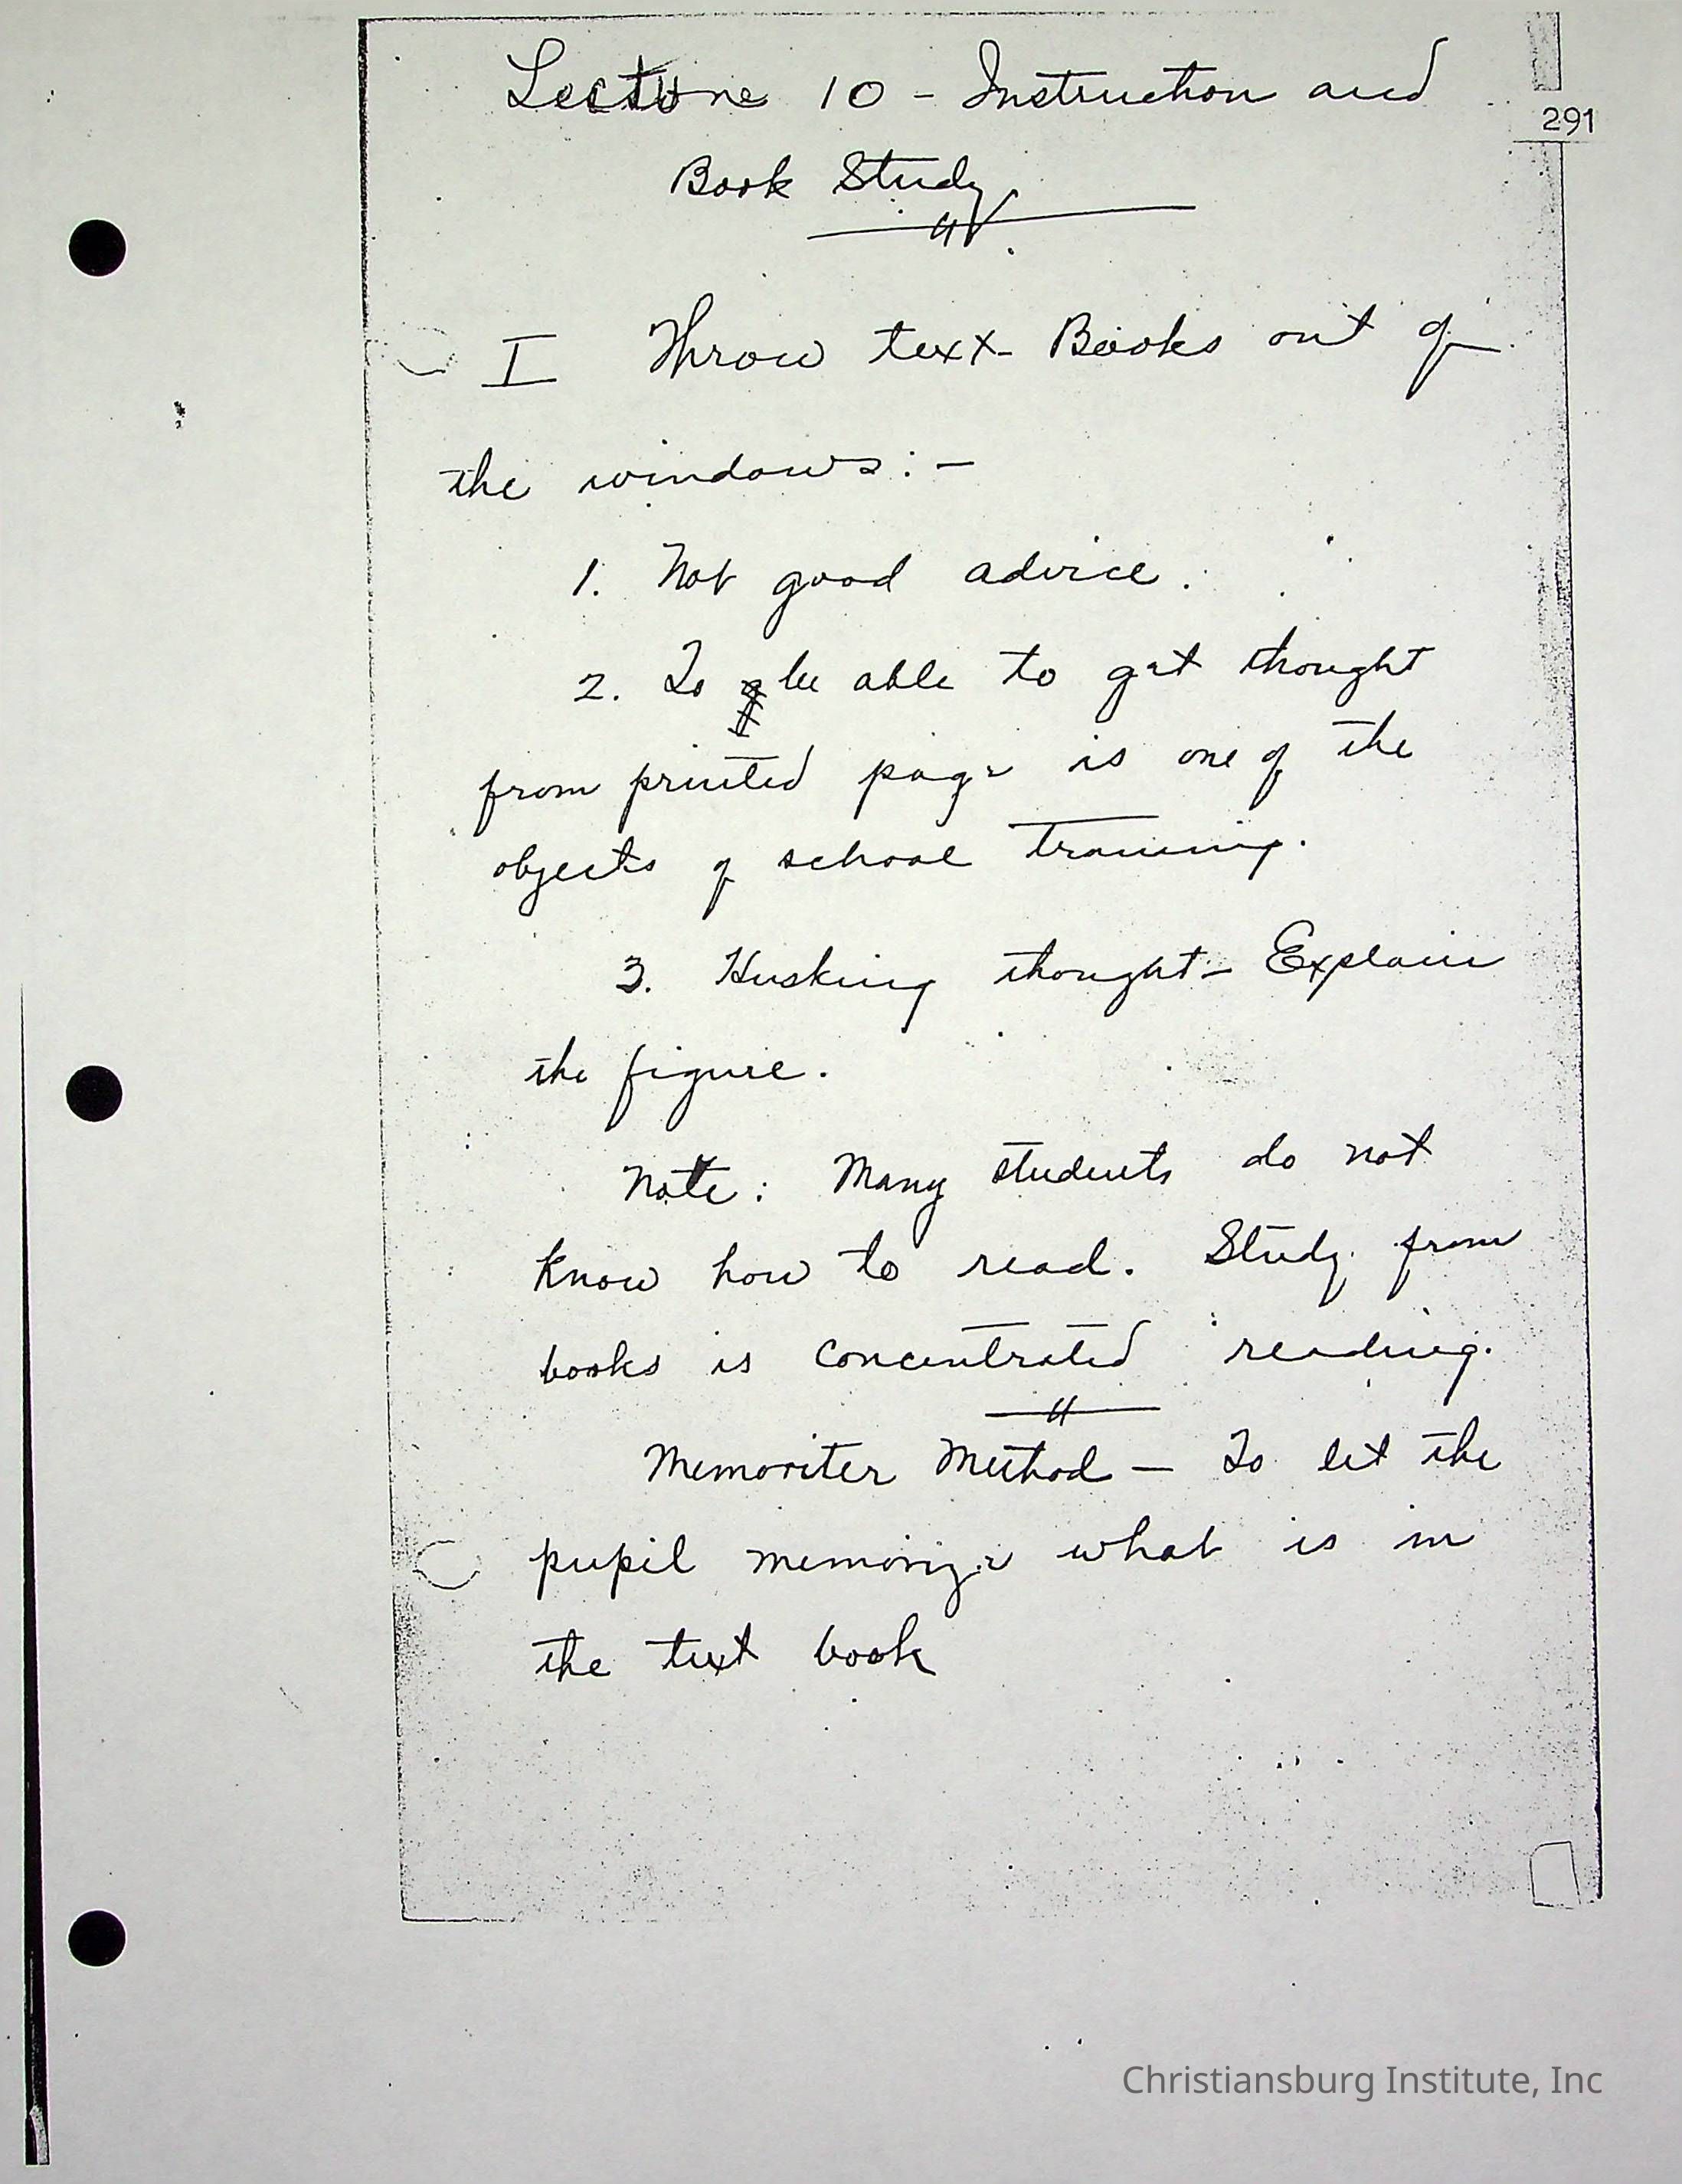 Lecture 10 - Instruction and
291
Book Study
I Throw text-Books out of
the windows:-
1. Not good advice.
2. To be able to get thought
from printed page is one of the
objects of school training.
3. Husking thought - Explain
the figure.
Note: Many students do not
know how to read. Study from
books is concentrated reading.
Memoriter Method - To let the
pupil memorize what is in
the text book
Christiansburg Institute, Inc